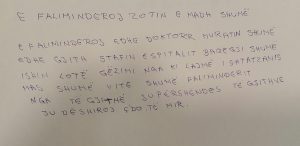 E FALIMINDEROJ ZOTIN E MADH SHUMË
E FALIMINDEROJ EDHE DOKTORR MURATIN SHUME
EDHE GJITH STAFIN ESPITALIT SHQERSI SHUME
ISHIN LOTË GEZIMI NGA KI LAJMË I
MAS SHUMË VITE SHUMË FALIMINDERIT
NGA TË GJITHË JU PERSHENDES TE GJITHVE
JU DËSHIROJ ÇDO TË MIR.